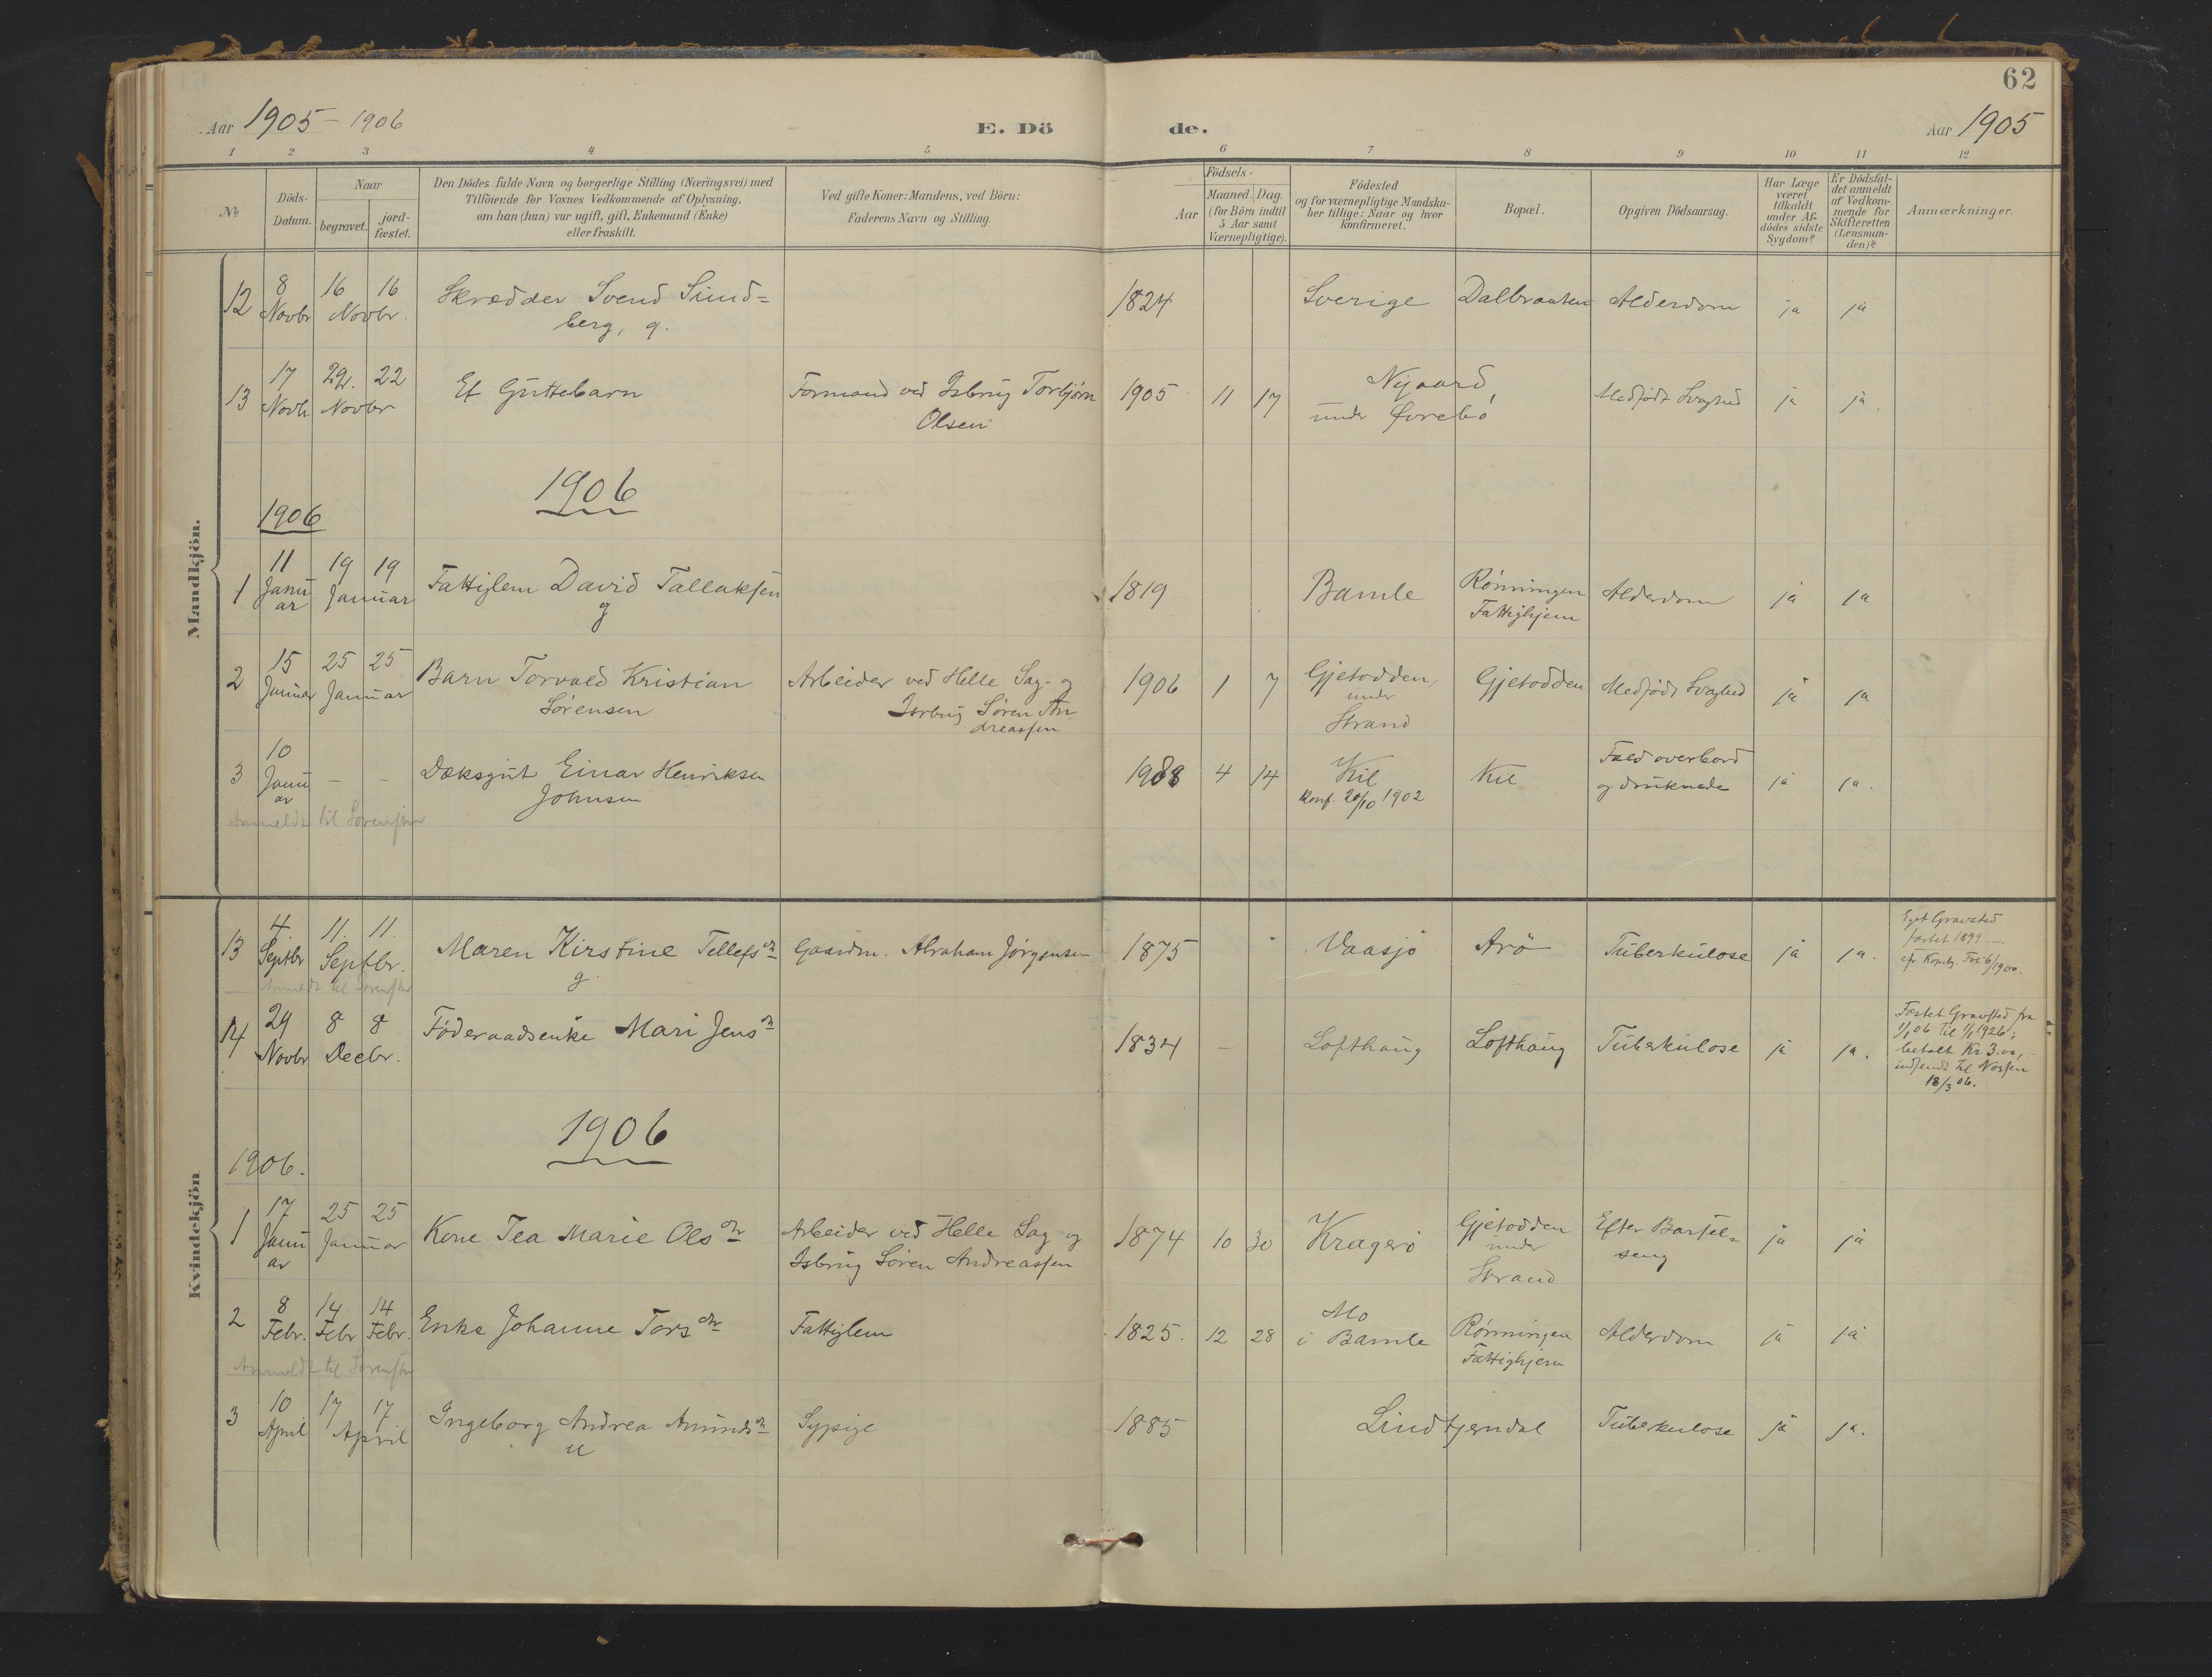 62
Aar 1905 – 1906
E. Dö
de.
Aar 1905
1 2 3 4 5 6 7 8 9 10 11 12
No
Döds-
Datum.
Naar
begravet.
jord-
fæstet.
Den Dödes fulde Navn og borgerlige Stilling (Næringsvei) med
Tilföiende for Voxnes Vedkommende af Oplysning,
om han (hun) var ugift, gift, Enkemand (Enke)
eller fraskilt.
Ved gifte Koner: Mandens, ved Börn:
Faderens Navn og Stilling.
Födsels-
Aar
Maaned. Dag.
(for Börn indtil
5 Aar samt
Værnepligtige).
Födested
og for værnepligtige Mandska-
ber tillige: Naar og hvor
konfirmeret.
Bopæl.
Opgiven Dödsaarsag.
Har Læge
været
tilkaldt
under Af-
dödes sidste
Sygdom?
Er Dödsfal-
det anmeldt
af Vedkom-
mende for
Skifteretten
(Lensman-
den)?
Anmærkninger.
Mandkjön.
12 8 16 16 Skrædder Svend Sund= 1824 Sverige Dalbraaten Alderdom ja ja
Novbr Novbr. berg, g.
13 17 22. 22 Et Guttebarn Formand ved Isbrug Torbjørn 1905 11 17 Nygaard Medfødt Svaghed ja ja.
Novb. Novbr Olsen under Ørebø
1906
1906
1 11 19 19 Fattiglem David Tallaksen 1819 Bamle Rönningen Alderdom ja ja
Janu Januar g Fattighjem
ar
2 15 25 25 Barn Torvald Kristian Arbeider ved Helle Sag- og 1906 1 7 Gjetodden, Gjetodden Medfødt Svaghed ja ja
Januar Januar Sörensen Isbrug Søren An under
dreassen Strand
3 10 – – Dæksgut Einar Henriksen 1988 4 14 Kil Kil Fald overbord ja ja.
Janu Johnsen Konf. 20/10 1902 og druknede
ar
Anmeldt til Sorenskr
Kvindekjön
13 4 11. 11. Maren Kirstine Tellefsdr Gaardm. Abraham Jørgensen 1875 Vaasjø Arø Tuberkulose ja ja. Eget Gravsted
Septbr Septbr. g fæstet 1899
Anmeldt til Sorenskr
14 29 8 8 Föderaadsenke Mari Jensdr 1834 – Lofthaug Lofthaug Tuberkulose ja ja. Fæstet Gravsted fra
Novbr Decbr. 1/1 06 til 1/1 1926;
betalt Kr 3.00,
indsendt til
18/3 06.
1906
1906.
1 17 25 25 Kone Tea Marie Olsdr Arbeider ved Helle Sag og 1874 10 30 Kragerø Gjetodden Efter Barsel= ja ja
Janu Januar Isbrug Sören Andreassen under seng
ar Strand
2 8 14 14 Enke Johanne Torsdr Fattiglem 1825. 12 28 Mo Rönningen Alderdom ja ja
Febr. Febr Febr. i Bamle Fattighjem
Anmeldt til Sorenskr
3 10 17 17 Ingeborg Andrea Amundsdr Sypige 1885 Lindtjerndal Tuberkulose ja ja.
April April u